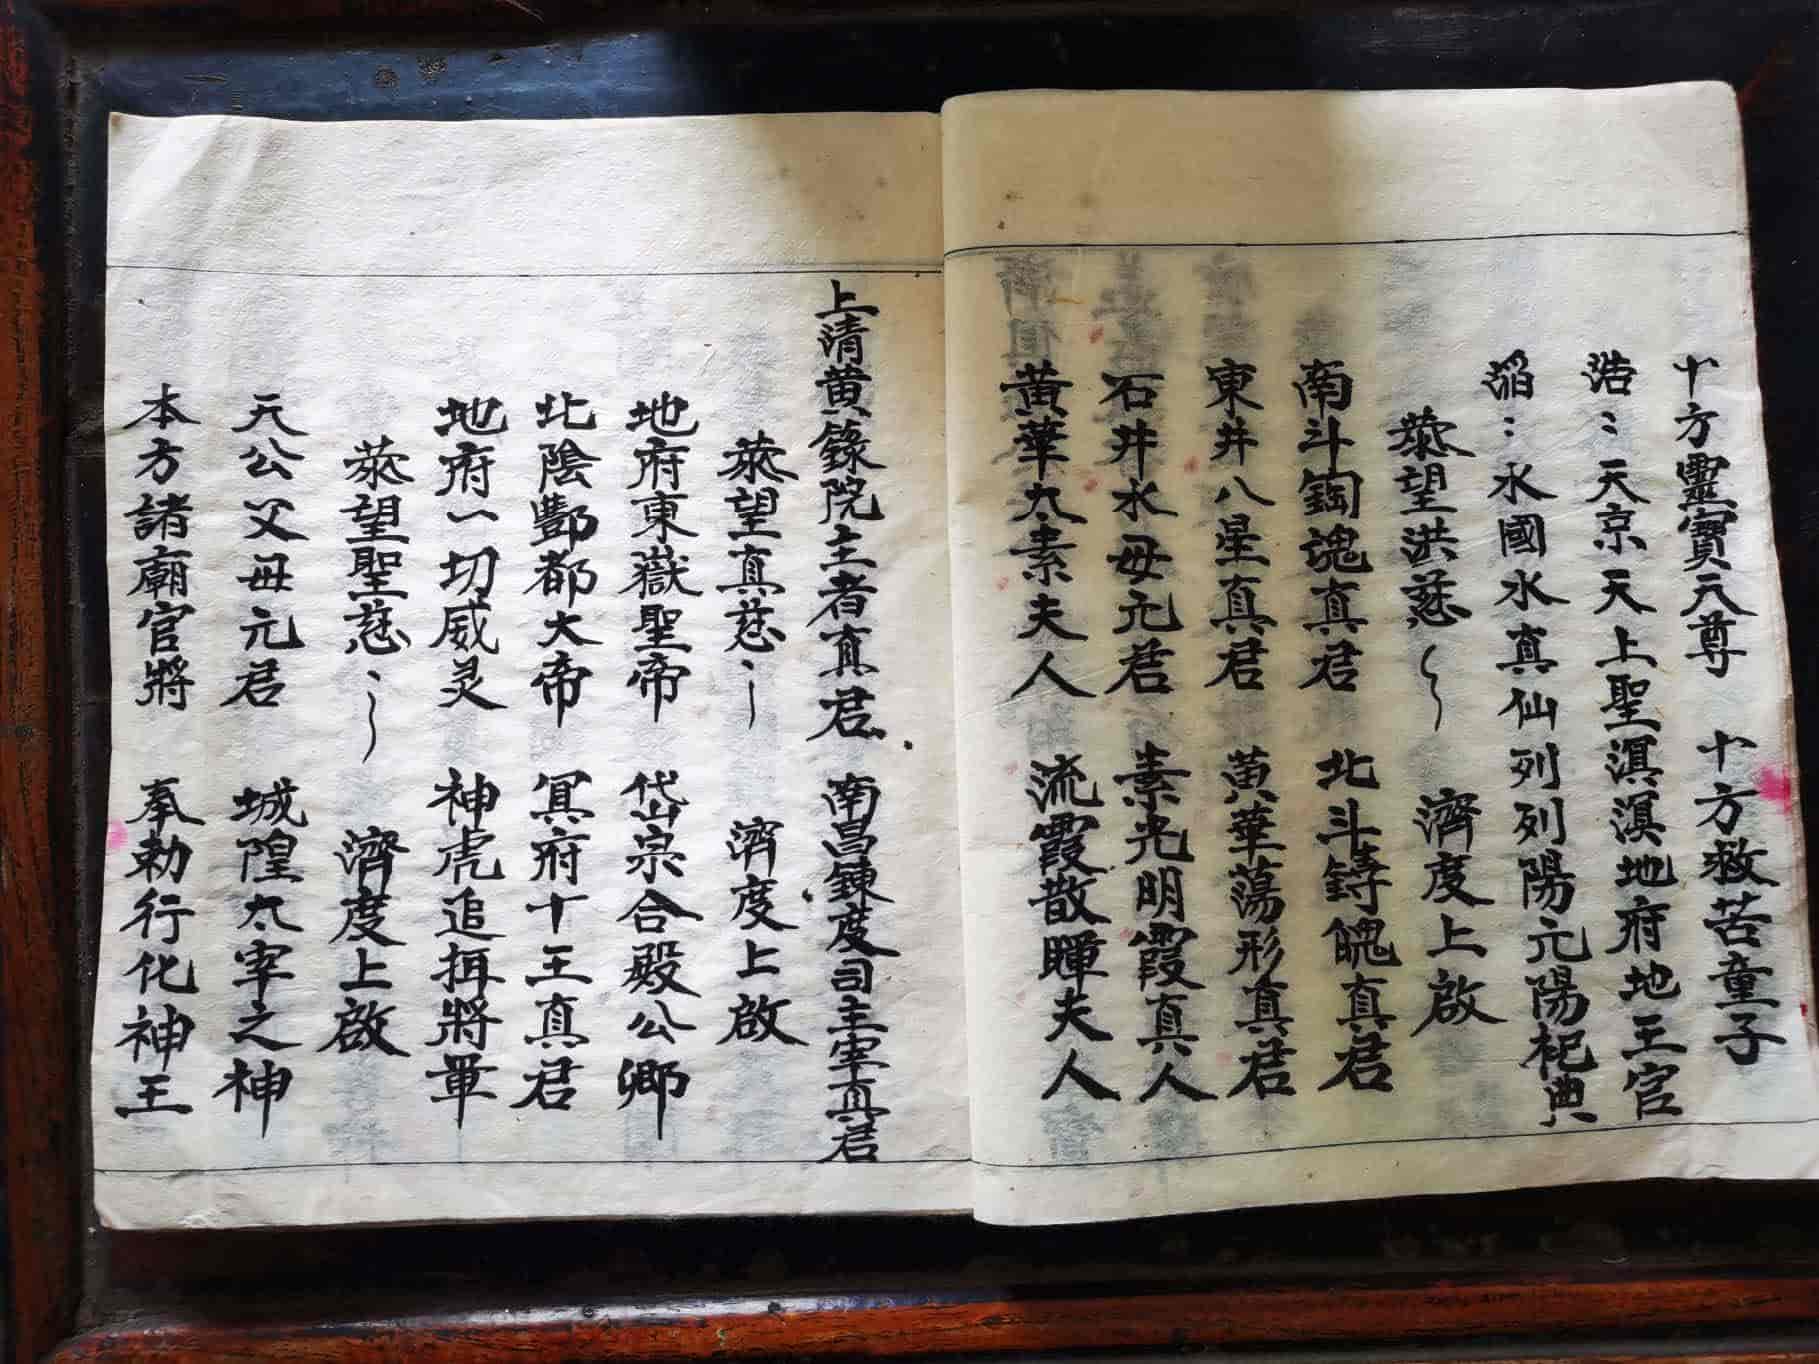 十方靈寶天尊　十方救苦童子
浩〻天京天上聖溟溟地府地王官
滔〻水國水真仙列列陽元陽祀典
叅望洪慈　濟度上啟
南斗鎶魂真君　北斗鑄魄真君
東井八星真君　黄華蕩形真君
石井水母元君　素光明霞真人
黃華太素夫人　流霞散暉夫人
上清黄籙院主者真君　南昌鍊度司主宰真君
叅望真慈　濟度上啟
地府東嶽聖帝　岱宗合殿公卿
北陰酆都大帝　冥府十王真君
地府一切威灵　神虎追攝將軍
叅望聖慈　濟度上啟
天公父母元君　城隍太宰之神
本方諸廟官將　奉勅行化神王